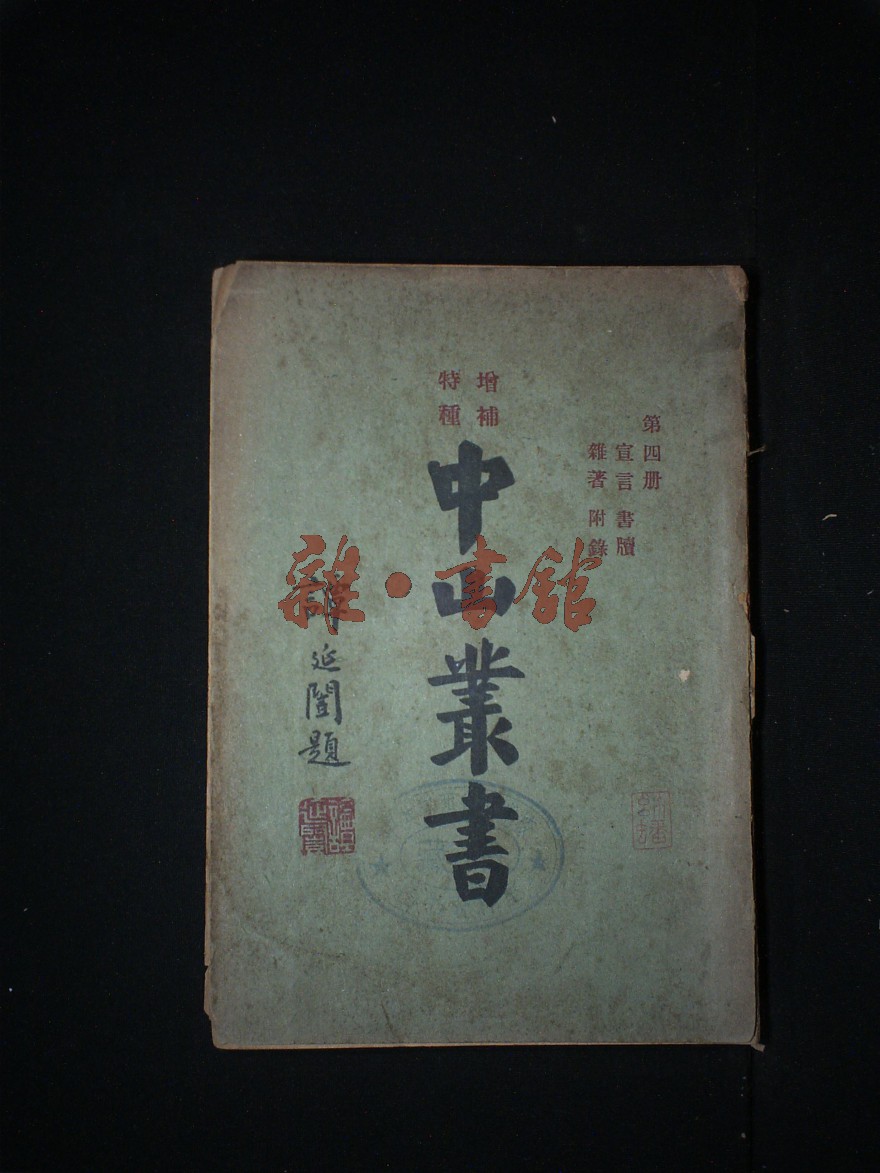 第四册
宣言 書牘
雜著 附錄
增補
特種
中山叢書
譚延闓題
雜·書館